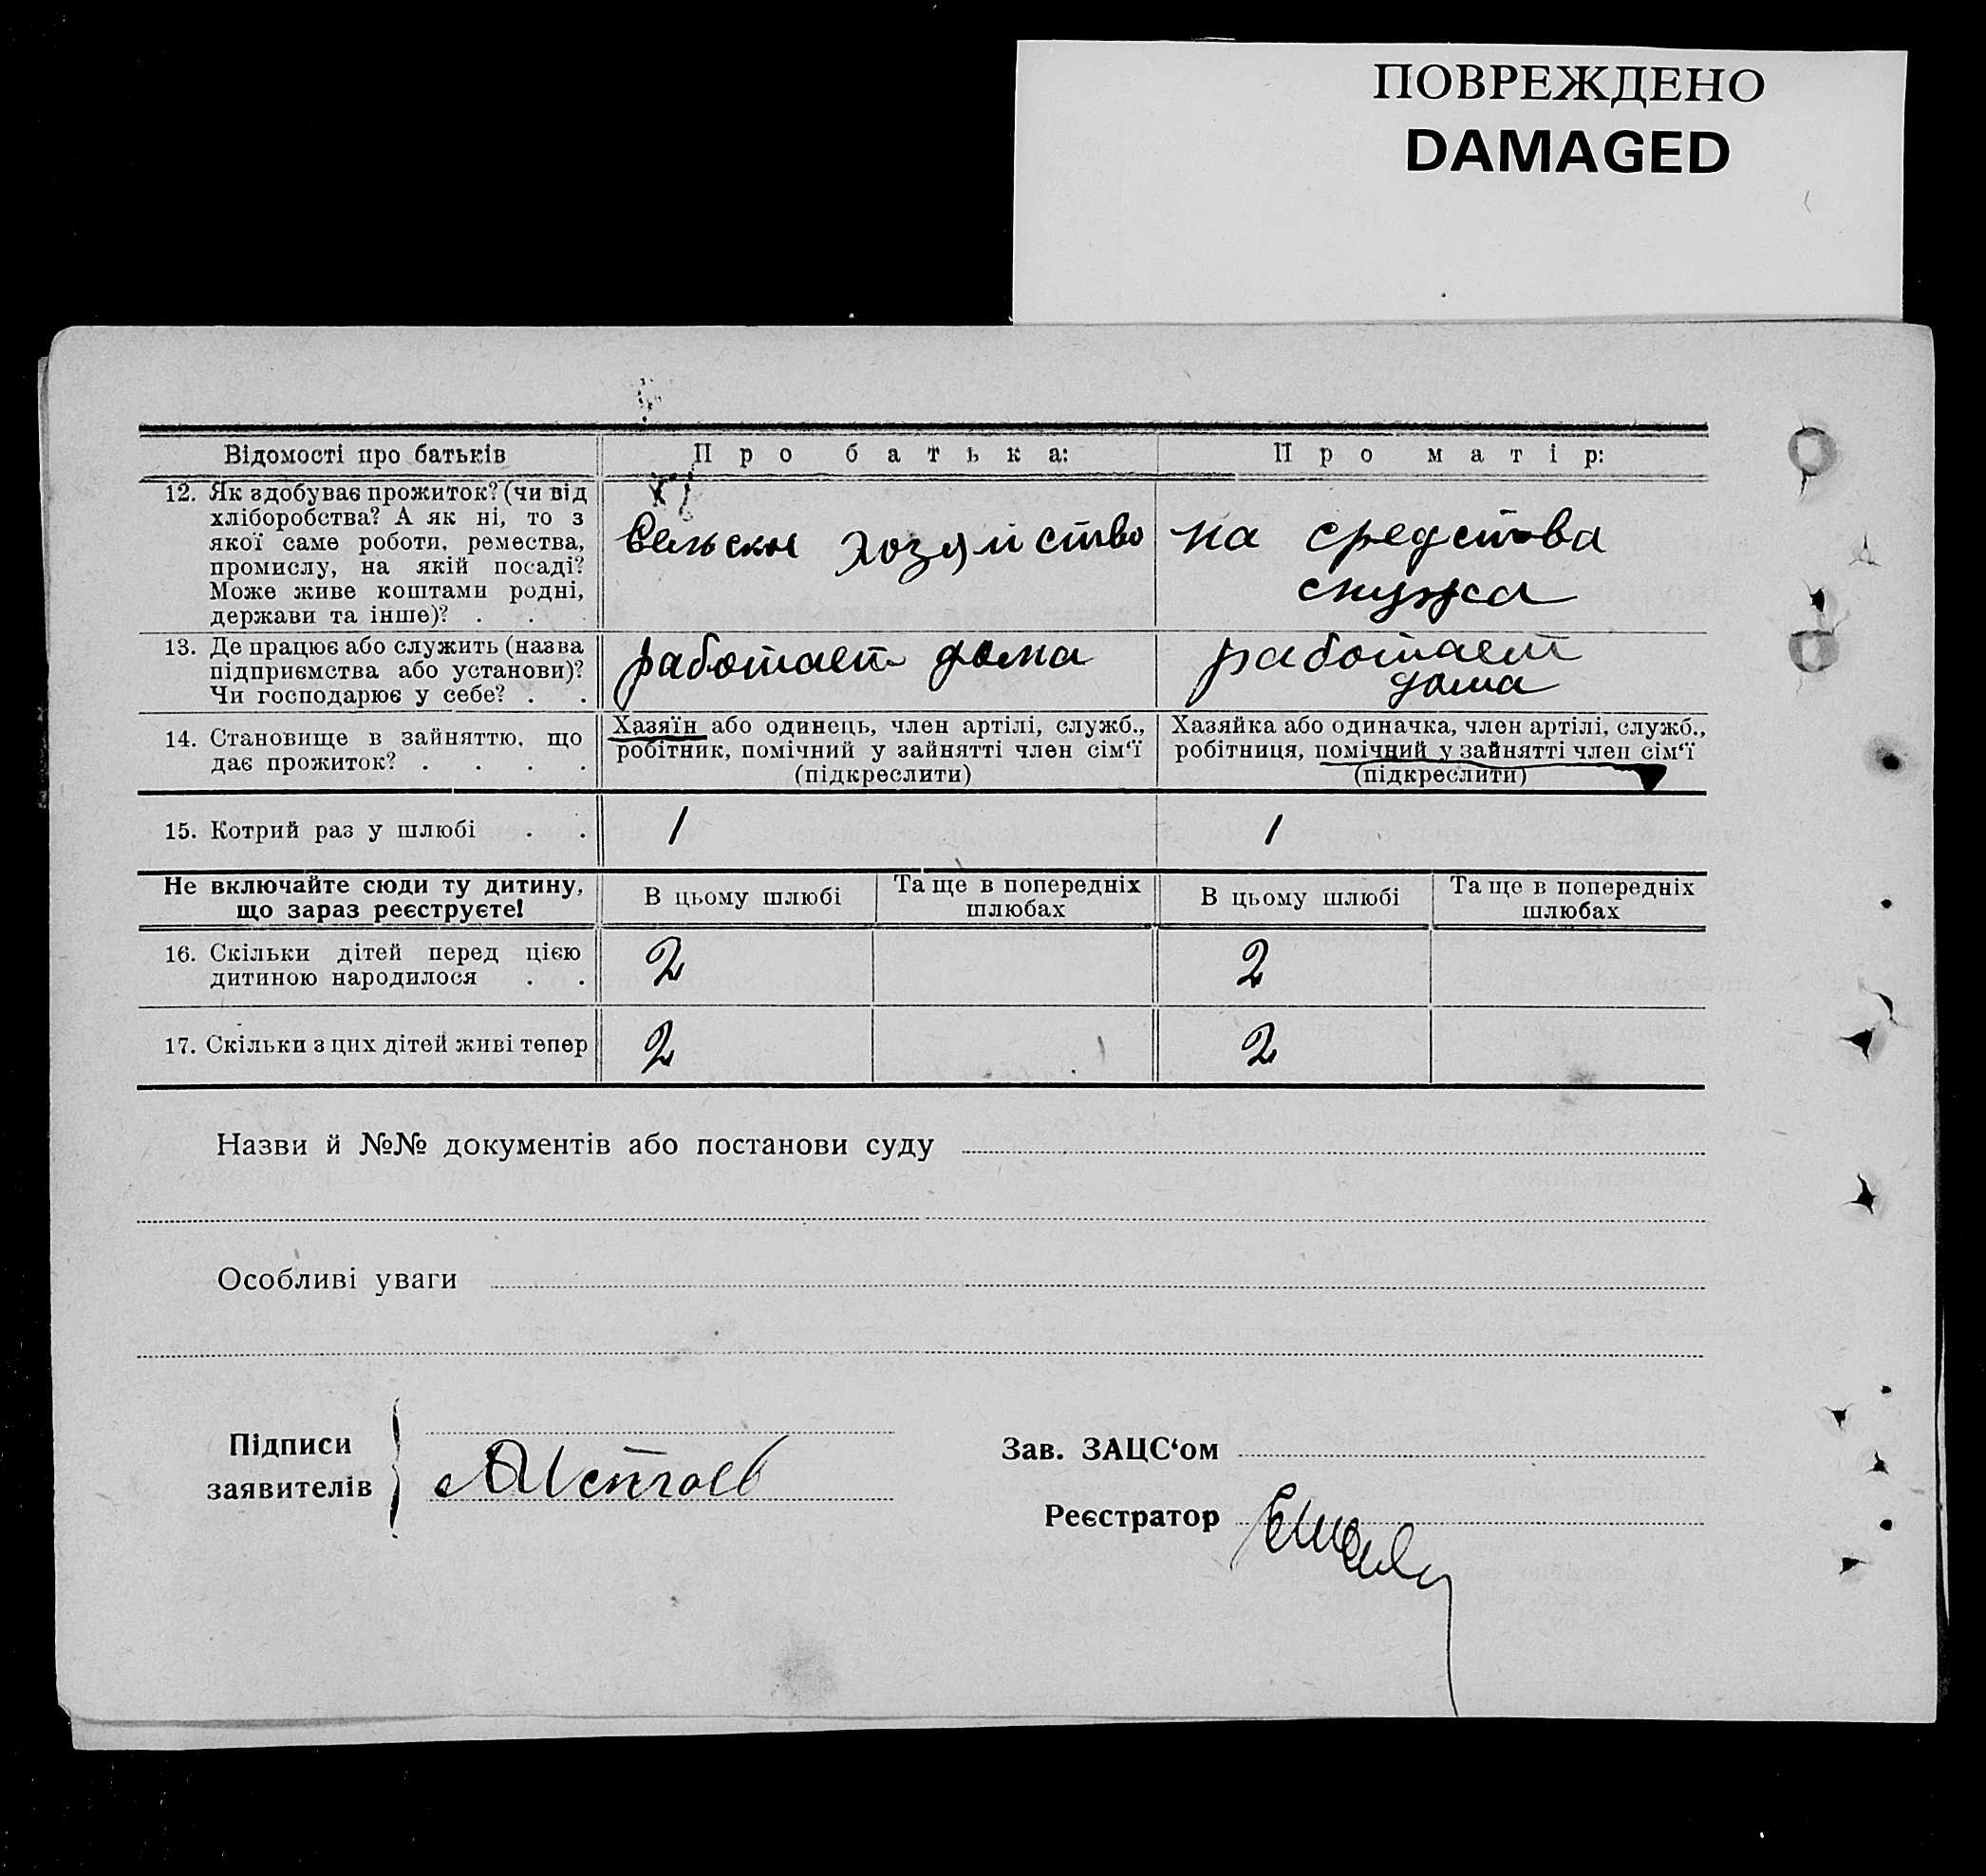 ПОВРЕЖДЕНО
DAMAGED
Відомості про батьків
Про батька:
Про матір:
12. Як здобуває прожиток? (чи від
хліборобства? А як ні, то з
якої саме роботи, ремества,
промислу, на якій посаді?
Може живе коштами родні,
держави та інше)? . . .
хозяйство
на средства
мужа
13. Де працює або служить (назва
підприємства або установи)?
Чи господарює у себе? . .
работает дома
работает
дома
14. Становище в зайняттю, що
дає прожиток? . . . .
Хазяїн або одинець, член артілі, служб.,
робітник, помічний у зайнятті член сім‘ї
(підкреслити)
Хазяйка або одиначка, член артілі, служб.,
робітниця, помічний у зайнятті член сім‘ї
(підкреслити)
15. Котрий раз у шлюбі . .
1
1
Не включайте сюди ту дитину,
що зараз реєструєте!
В цьому шлюбі
Та ще в попередніх
шлюбах
В цьому шлюбі
Та ще в попередніх
шлюбах
16. Скільки дітей перед цією
дитиною народилося . .
2
2
17. Скільки з цих дітей живі тепер
2
2
Назви й №№ документів або постанови суду
Особливі уваги
Підписи
заявителів
Зав. ЗАЦС‘ом
Реєстратор